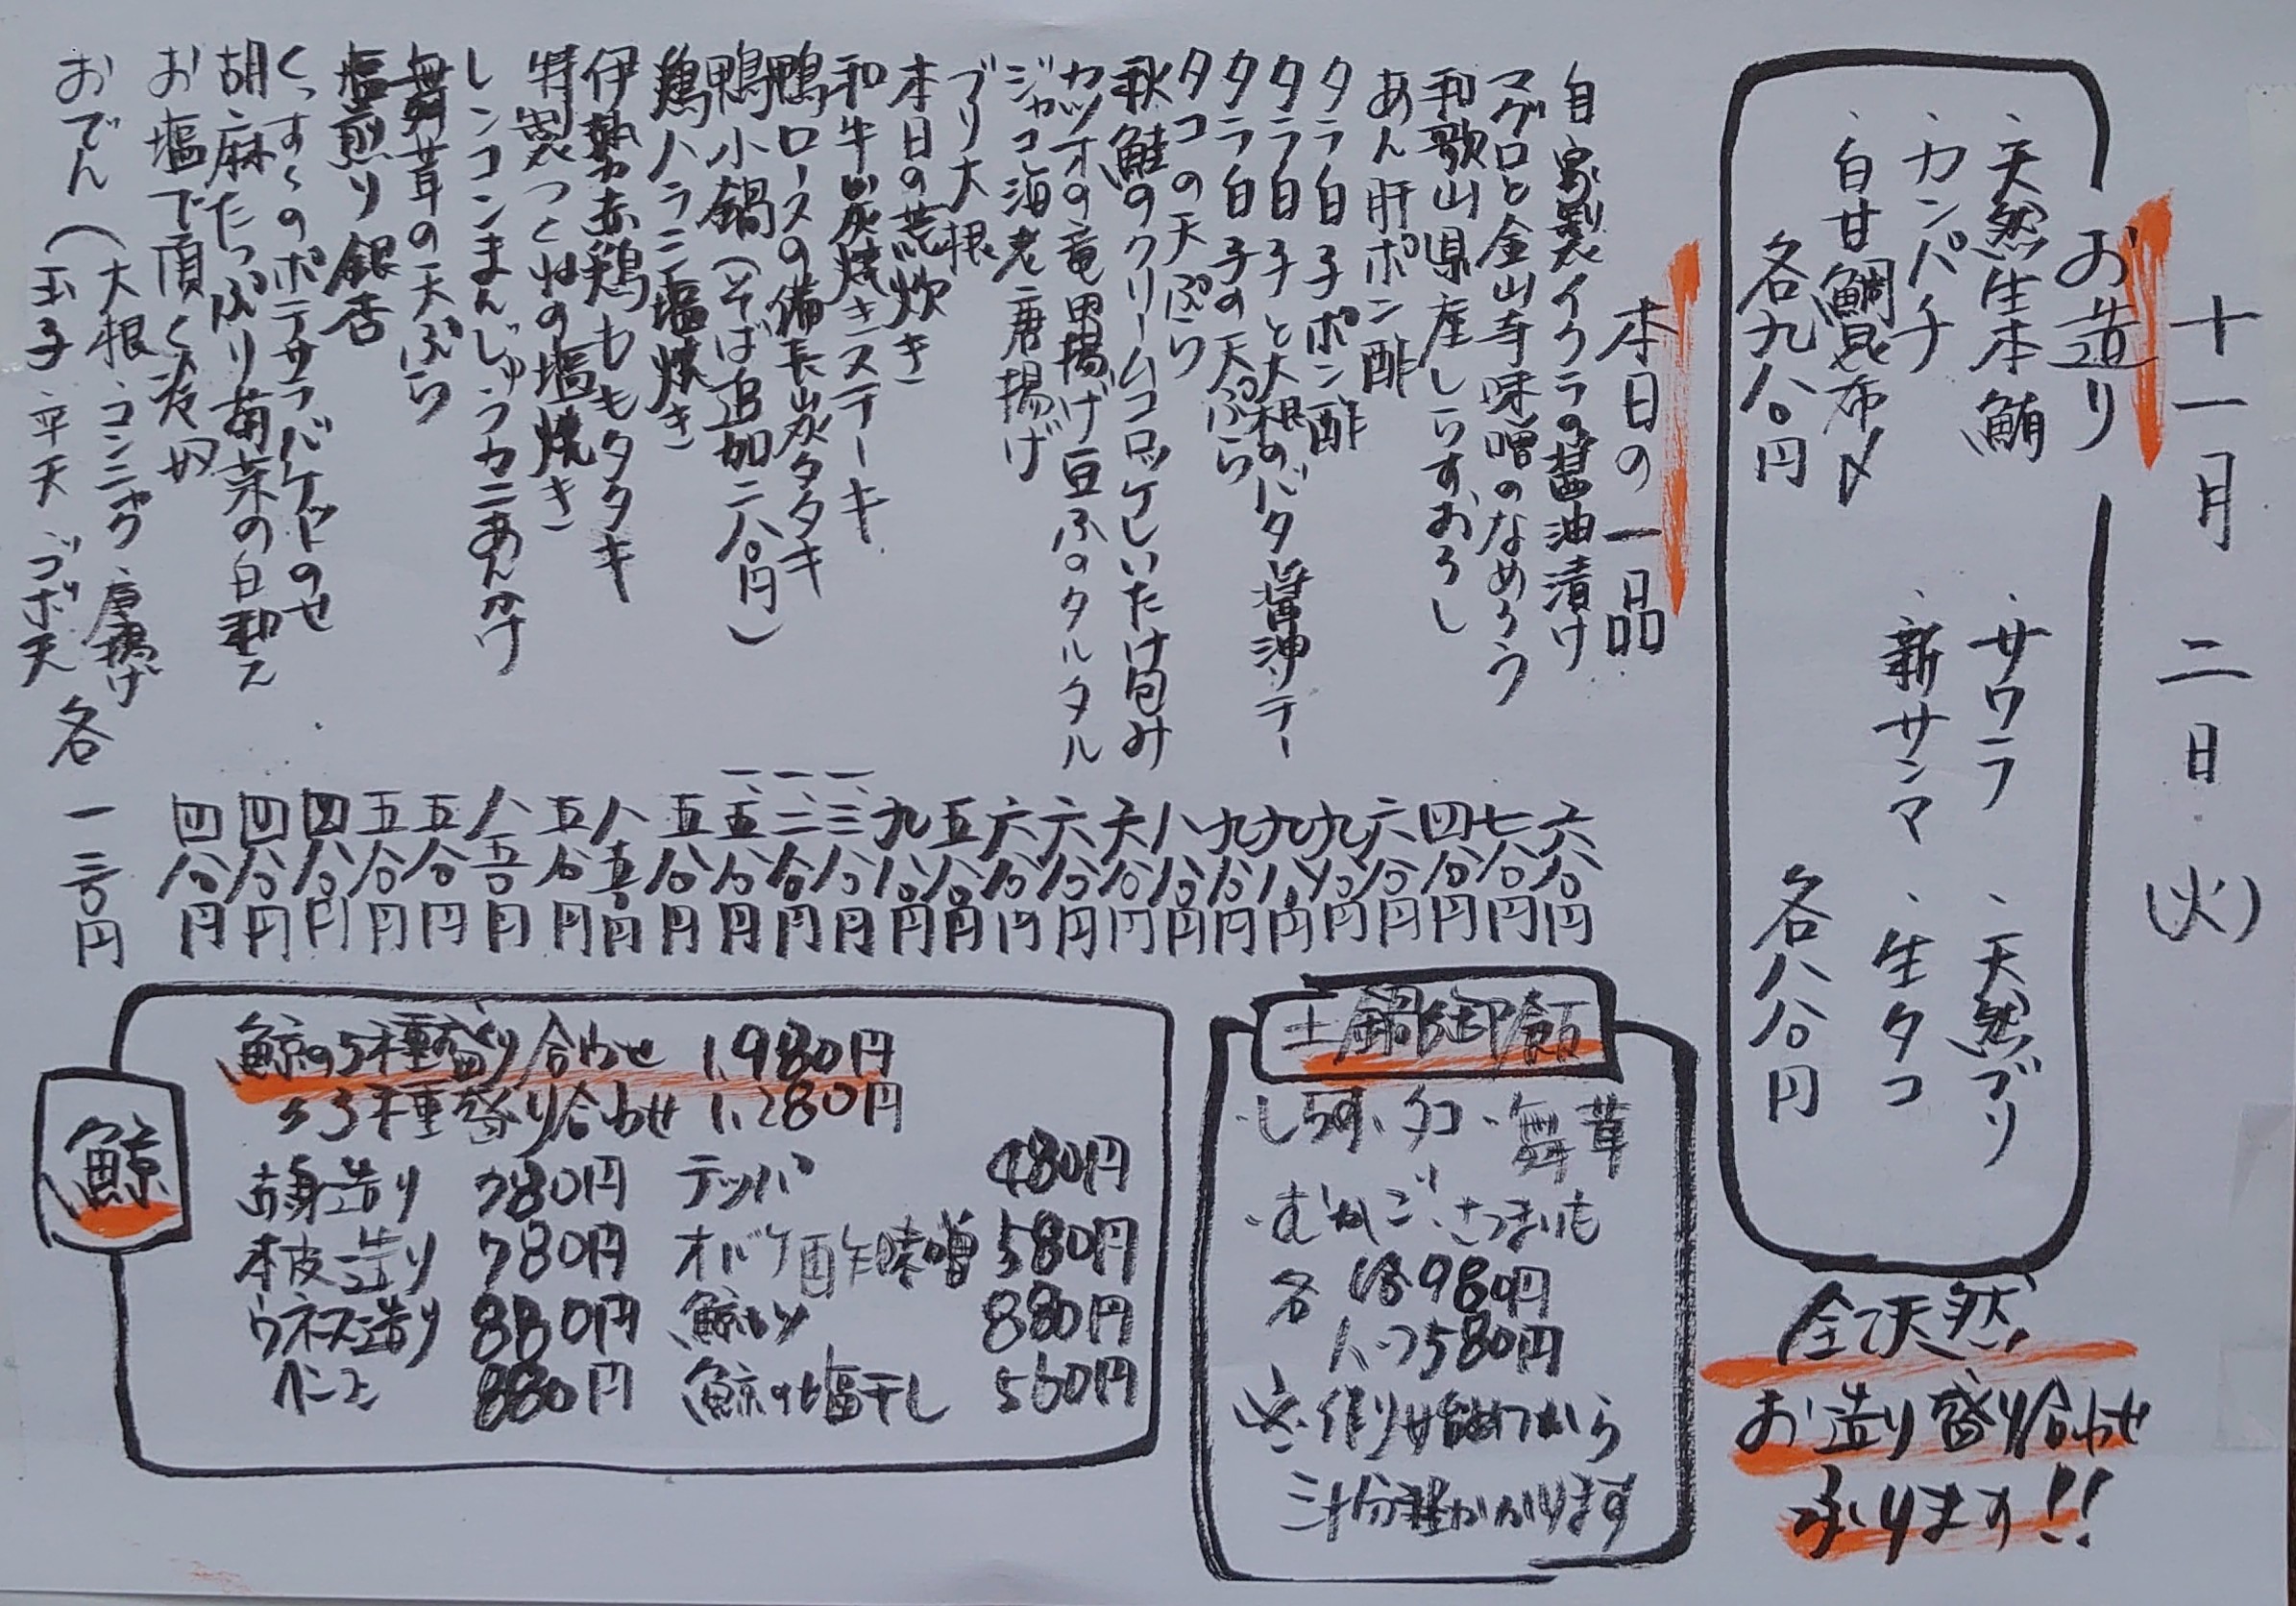 十一月二日(火)
お造り
・天然生本鮪
・カンパチ
・白甘鯛昆布〆
各九八〇円
・サワラ
・新サンマ
・天然ブリ
・生タコ
各八八〇円
全て天然
お造り盛り合わせ
承ります!!
本日の一品
自家製イクラの醤油漬け 六八〇円
マグロと金山寺味噌のなめろう 七八〇円
和歌山県産しらすおろし 四八〇円
あん肝ポン酢 六八〇円
タラ白子ポン酢 九八〇円
タラ白子と大根のバタ醤油ソテー 九八〇円
タラ白子の天ぷら 九八〇円
タコの天ぷら 八八〇円
秋鮭のクリームコロッケしいたけ包み 六八〇円
カツオの竜田揚げ豆ふのタルタル 六八〇円
ジャコ海老唐揚げ 六八〇円
ブリ大根 五八〇円
本日の荒炊き 九八〇円
和牛炭焼きステーキ 一、三八〇円
鴨ロースの備長炭タタキ 一、二八〇円
鴨小鍋(そば追加二八〇円) 一、五八〇円
鶏ハラミ塩焼き 五八〇円
伊勢赤鶏ももタタキ 八五〇円
特製つくねの塩焼き 五八〇円
レンコンまんじゅうカニあんかけ 八五〇円
舞茸の天ぷら 五八〇円
塩煎り銀杏 五八〇円
くっすんのポテサラバケットのせ 四八〇円
胡麻たっぷり菊菜の白和え 四八〇円
お塩で頂く冷奴 四八〇円
おでん(大根・コンニャク・厚揚げ
玉子・平天・ゴボ天 各一三〇円
土鍋御飯
・しらす・タコ・舞茸
・むかご・さつまいも
各 1合 980円
ハーフ580円
※作り始めてから
三十分程かかります
鯨
鯨の5種盛り合わせ 1,980円
〃3種盛り合わせ 1,280円
赤身造り 780円 テッパ 480円
本皮造り 780円 オバケ酢味噌 580円
ウネス造り 880円 鯨カツ 880円
ベーコン 880円 鯨の塩干し 560円